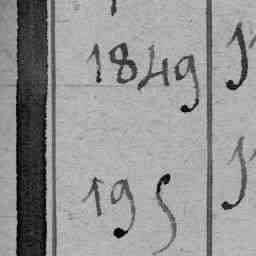 1849
195